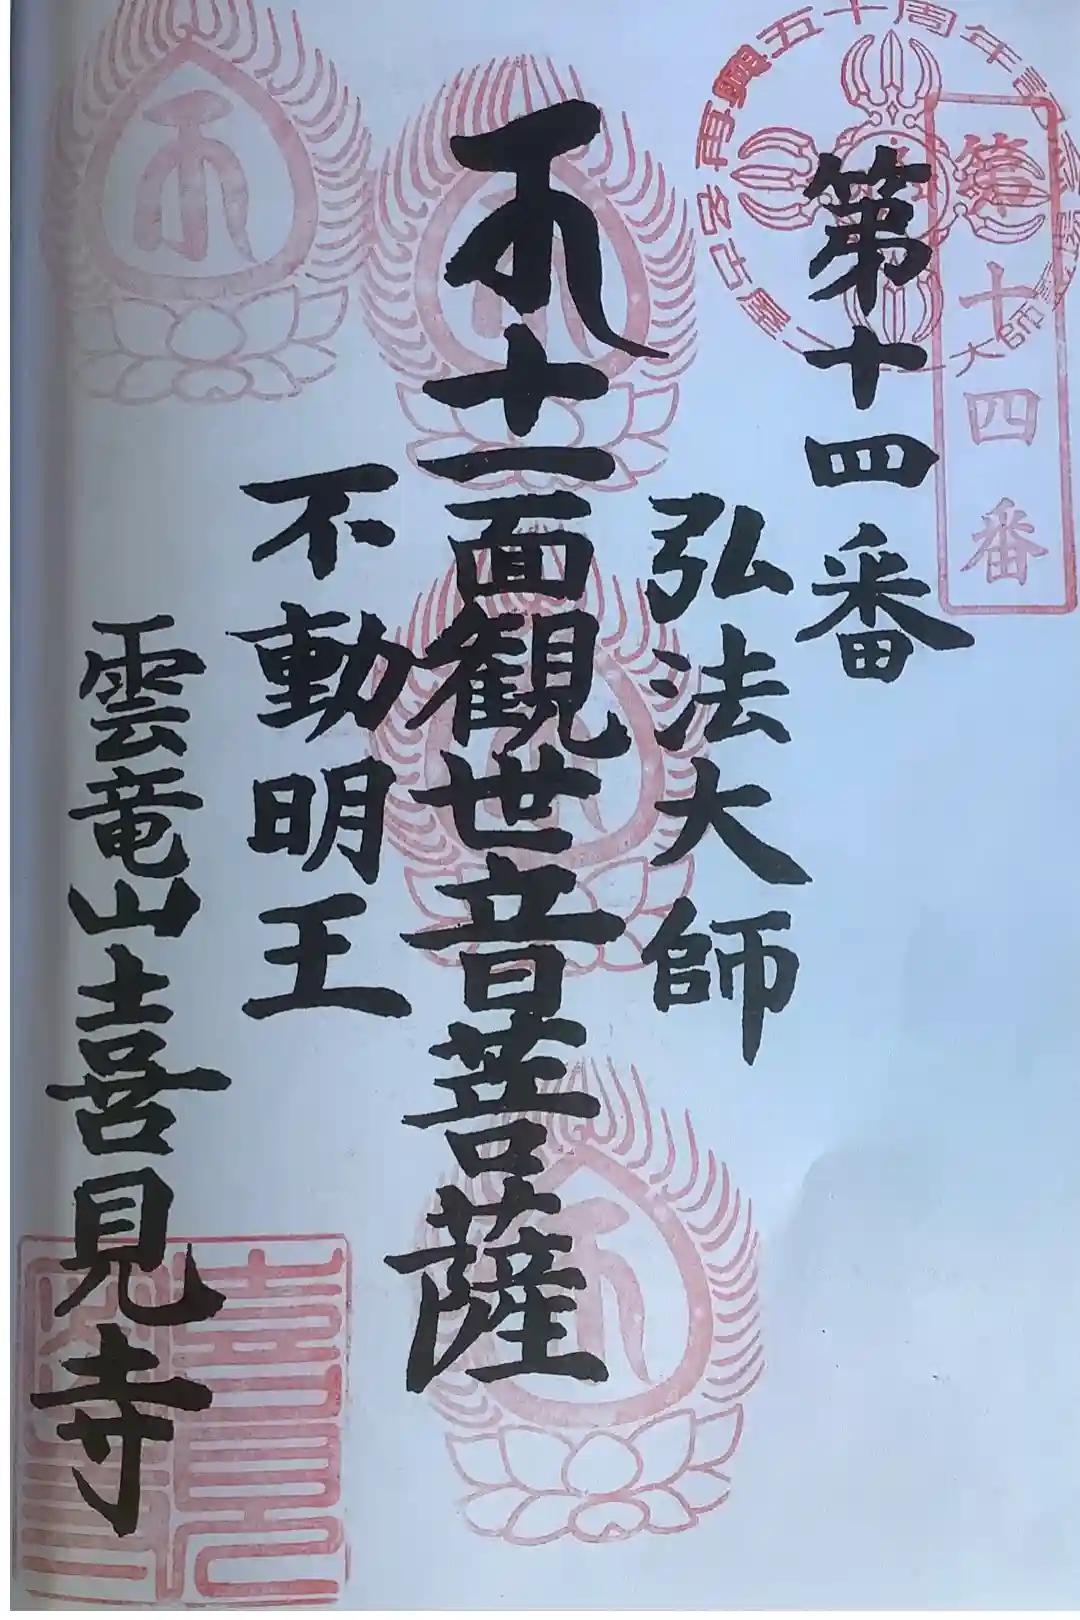 第十四番
再興五十周年記念
名古屋二十一大師霊場
第十四番
弘法大師
十一面観世音菩薩
不動明王
雲竜山喜見寺